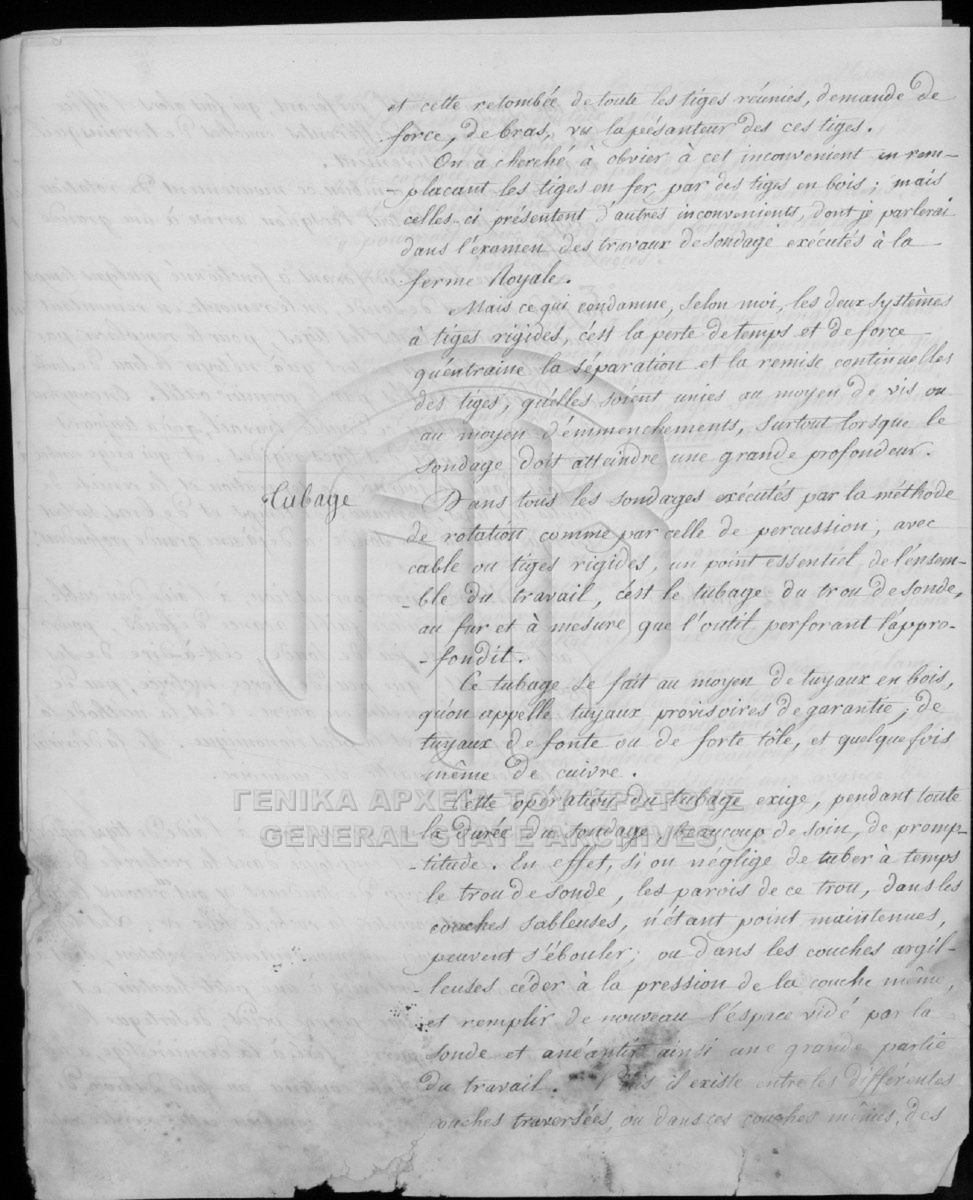 et cette retombée de toute les tiges réunies, demande de
force, de bras, vu la pésanteur des ces tiges.
On a cherché à obvier à cet inconvenient en rem-
-placant les tiges en fer, par des tiges en bois; mais
celles-ci présentent d'autres inconvenients, dont je parlerai
dans l'éxamen des travaux de sondage exécutés à la
ferme Royale.
Mais ce qui condamne, selon moi, les deux systèmes
à tiges rigides, c'est la perte de temps et de force
qu'entraine la séparation et la remise continuelles
des tiges, qu'elles soient unies au moyen de vis ou
au moyen d'emmenchements, surtout lorsque le
sondage doit atteindre une grande profondeur.
Tubage
Dans tous les sondages exécutés par la méthode
de rotation comme par celle de percussion, avec
cable ou tiges rigides, un point essentiel de l'ensem-
-ble du travail, c'est le tubage du trou de sonde,
au fur et à mesure que l'outil perforant l'appro-
-fondit.
Ce tubage se fait au moyen de tuyaux en bois,
qu'on appelle tuyaux provisoires de garantie, de
tuyaux de fonte ou de forte tôle, et quelque fois
même de cuivre.
ΓΕΝΙΚΑ ΑΡΧΕΙΑ ΤΟΥ ΚΡΑΤΟΥΣ
GENERAL STATE ARCHIVES
Cette opération du tubage exige, pendant toute
la durée du sondage, beaucoup de soin, de promp-
-titude. En effet, si on néglige de tuber à temps
le trou de sonde, les parois de ce trou, dans les
couches sableuses, n'étant point maintenues,
peuvent s'ébouler; ou dans les couches argil-
-leuses céder à la pression de la couche même,
et remplir de nouveau l'éspace vidé par la
sonde et anéantir ainsi une grande partie
du travail. Puis il existe entre les différentes
couches traversées, ou dans ces couches mêmes, des